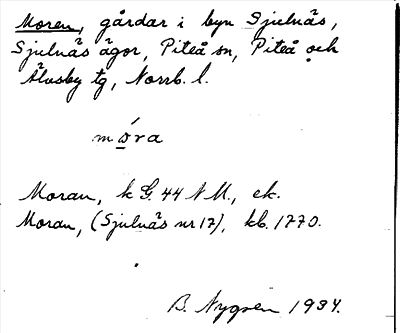 Moren, gårdar i byn Sjulnäs,
Sjulnäs ägor, Piteå sn, Piteå och
Älvsby tg, Norrb. l.
mó̲ra
Moran, k G. 44 N M., ek.
Moran, (Sjulnäs nr 17), kb. 1770.
B. Nygren 1934.